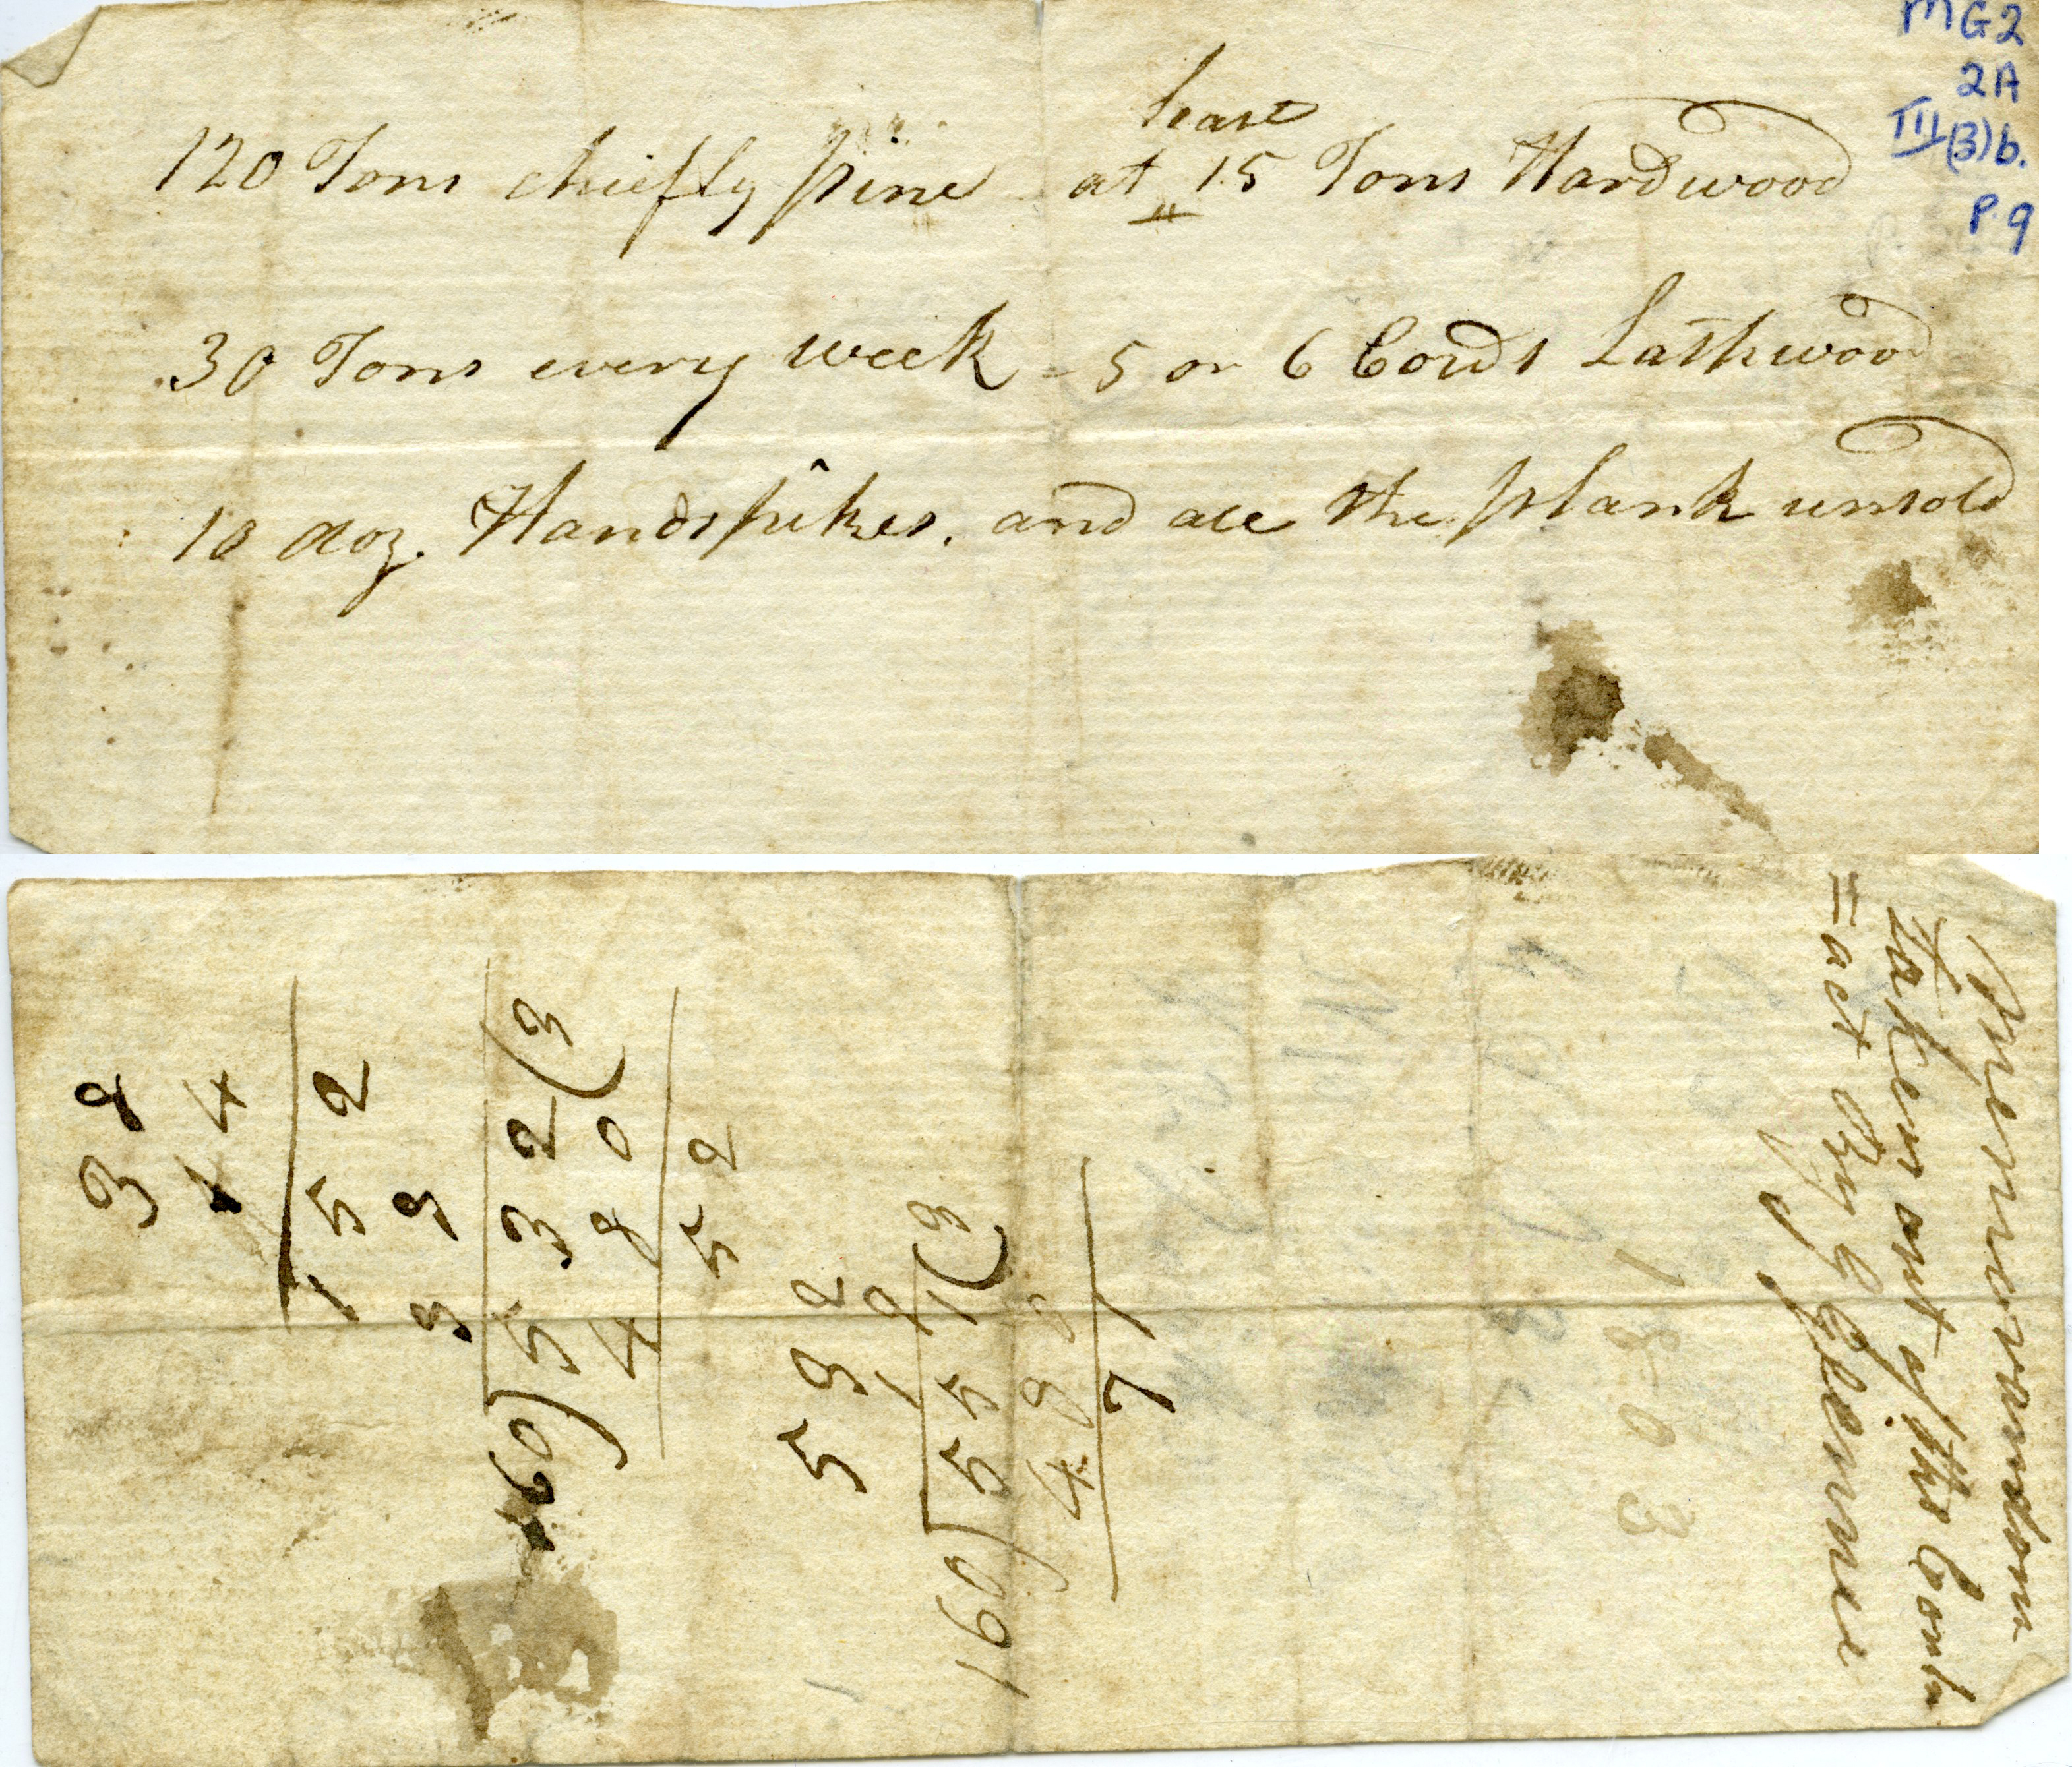 MG2
2A
III(3)b.
P.9
least
120 Tons chiefly pine at 15 Tons Hardwood
30 Tons every week - 5 or 6 Cords Lathwood
10 doz. Handspikes. and all the plank unsold
38
14
152
38
160)532(3
480
52
532
19
160)551(3
480
71
1803
Memorandom
taken out of the Contr
=act By G Glennie